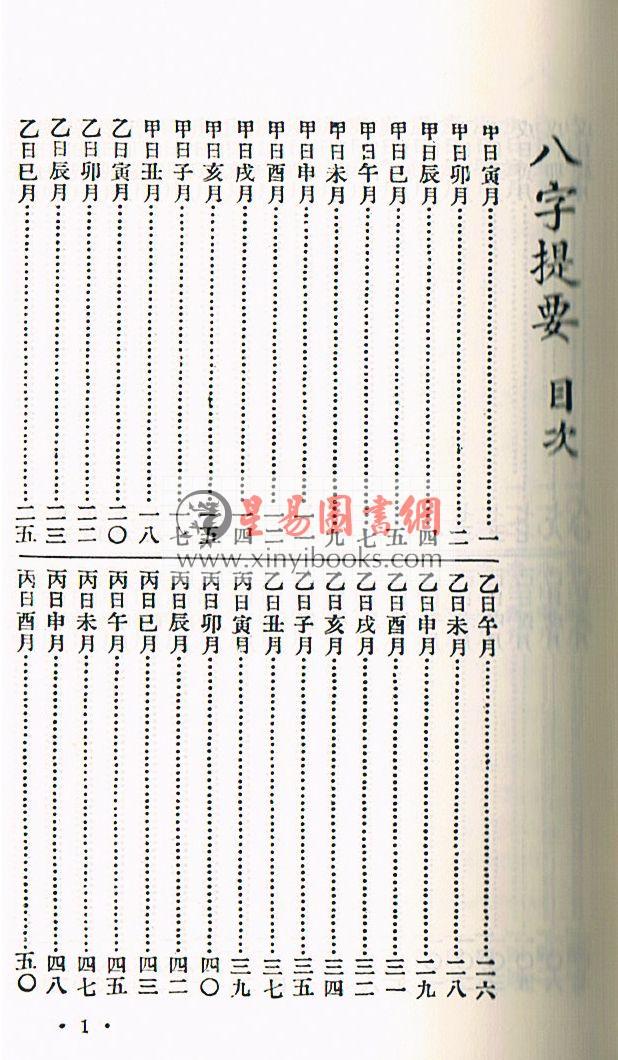 八字提要 目次
甲日寅月……一
甲日卯月……二
甲日辰月……四
甲日巳月……五
甲日午月……七
甲日未月……九
甲日申月……一一
甲日酉月……一二
甲日戌月……一四
甲日亥月……一五
甲日子月……一七
甲日丑月……一八
乙日寅月……二〇
乙日卯月……二二
乙日辰月……二三
乙日巳月……二五
乙日午月……二六
乙日未月……二八
乙日申月……二九
乙日酉月……三一
乙日戌月……三二
乙日亥月……三四
乙日子月……三五
乙日丑月……三七
丙日寅月……三九
丙日卯月……四〇
丙日辰月……四二
丙日巳月……四三
丙日午月……四五
丙日未月……四七
丙日申月……四八
丙日酉月……五〇
星易圖書網
www.xinyibooks.com
• 1 •